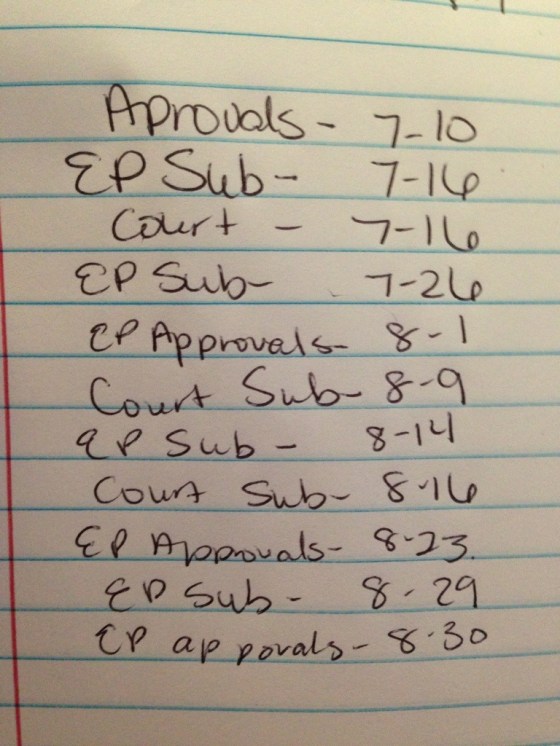 Aprovals - 7-10
EP Sub - 7-16
Court - 7-16
EP Sub - 7-26
EP Approvals - 8-1
Court Sub - 8-9
EP Sub - 8-14
Court Sub - 8-16
EP Approvals - 8-23.
EP Sub - 8-29
EP apporals - 8-30